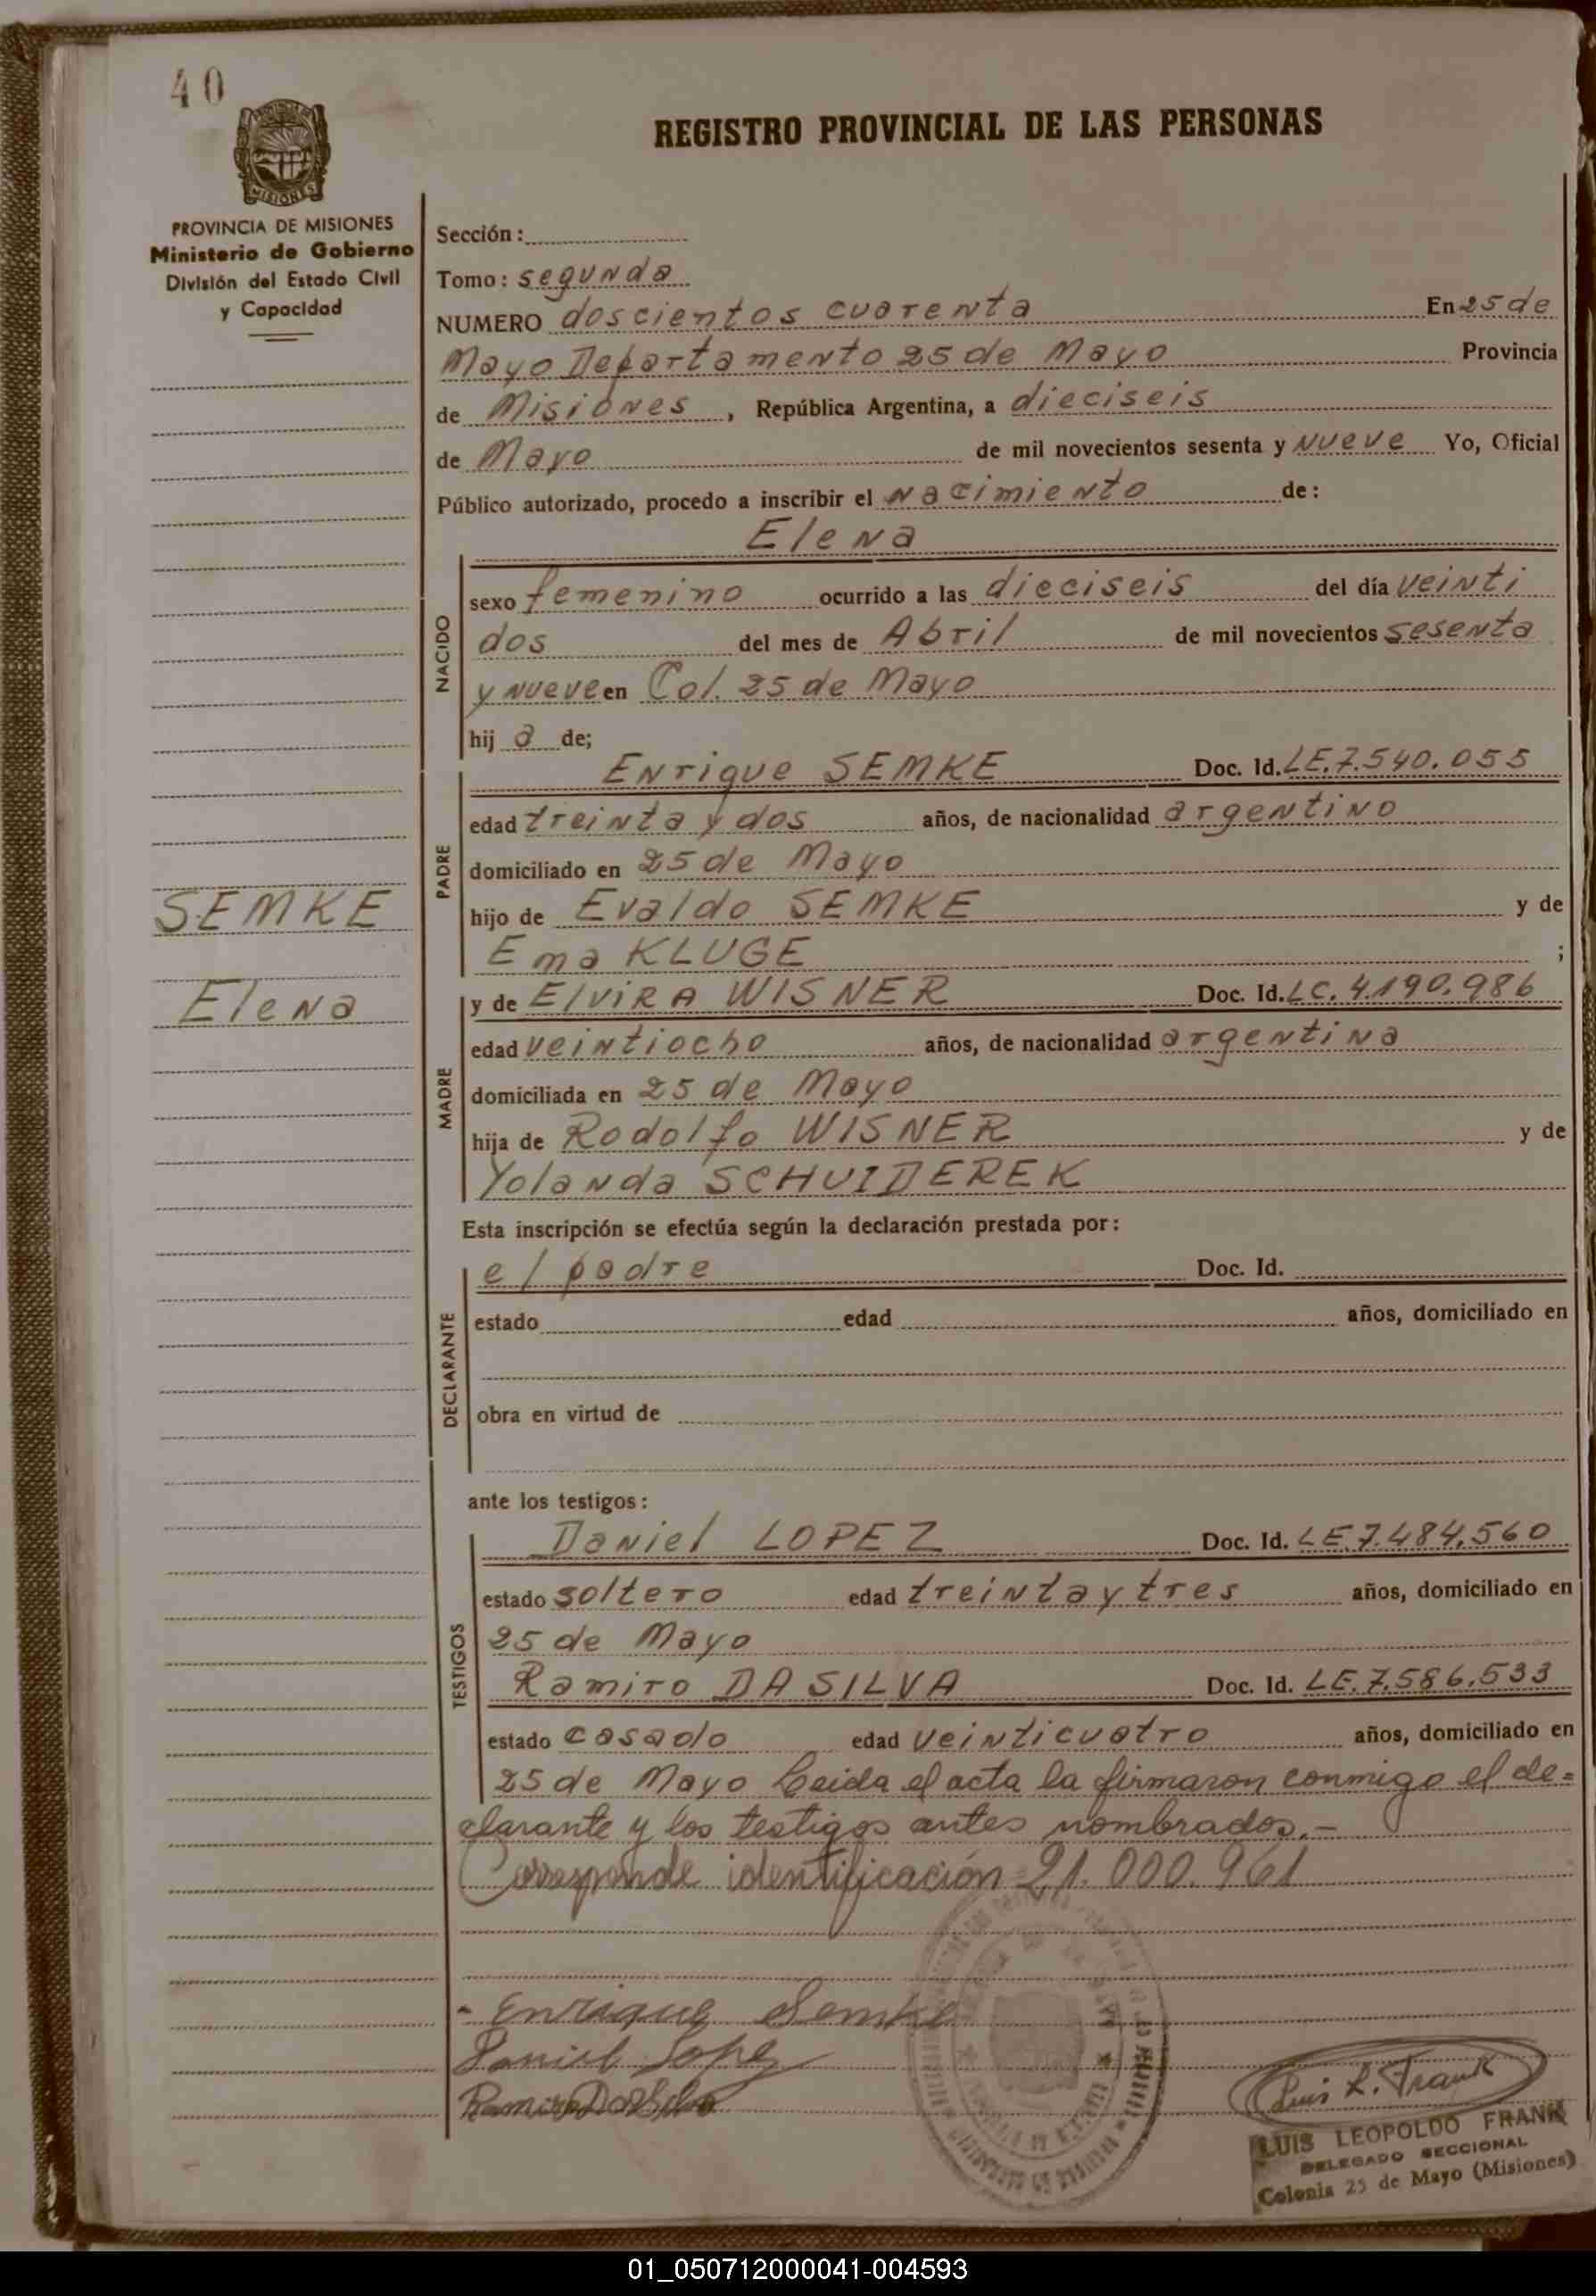 40
REGISTRO PROVINCIAL DE LAS PERSONAS
MISIONES
PROVINCIA DE MISIONES
Ministerio de Gobierno
División del Estado Civil
y Capacidad
SEMKE
Elena
Sección:
Tomo: segunda
NUMERO doscientos cuarenta En 25 de
Mayo Departamento 25 de Mayo Provincia
de Misiones, República Argentina, a dieciseis
de Mayo de mil novecientos sesenta y nueve Yo, Oficial
Público autorizado, procedo a inscribir el nacimiento de:
Elena
NACIDO
sexo femenino ocurrido a las dieciseis del día veinti
dos del mes de Abril de mil novecientos sesenta
y nueve en Col. 25 de Mayo
hij a de;
Enrique SEMKE Doc. Id. LE.7.540.055
PADRE
edad treinta y dos años, de nacionalidad argentino
domiciliado en 25 de Mayo
hijo de Evaldo SEMKE y de
Ema KLUGE ;
y de ElviRA WISNER Doc. Id. LC. 4.190.986
MADRE
edad veintiocho años, de nacionalidad argentina
domiciliada en 25 de Mayo
hija de Rodolfo WISNER y de
Yolanda SCHUIDEREK
Esta inscripción se efectúa según la declaración prestada por:
el padre Doc. Id.
DECLARANTE
estado edad años, domiciliado en
obra en virtud de
ante los testigos:
Daniel LOPEZ Doc. Id. LE.7.484.560
TESTIGOS
estado soltero edad treinta y tres años, domiciliado en
25 de Mayo
Ramiro DA SILVA Doc. Id. LE.7.586.533
estado casado edad veinticuatro años, domiciliado en
25 de Mayo Leida el acta la firmaron conmigo el de=
clarante y los testigos antes nombrados.-
Corresponde identificación 21.000.961
Enrique Semke
Daniel Lopez
Ramiro Da Silva
Luis L. Frank
LUIS LEOPOLDO FRANK
DELEGADO SECCIONAL
Colonia 25 de Mayo (Misiones)
01_050712000041-004593